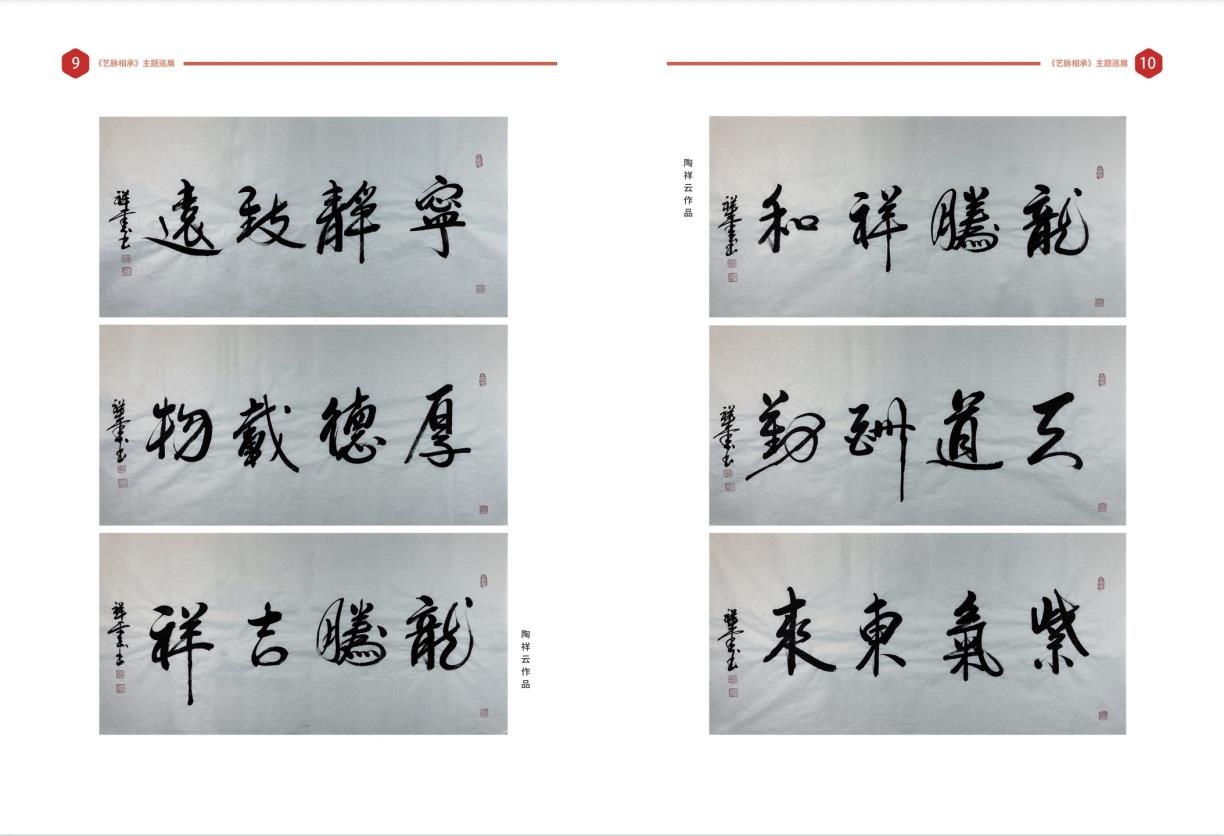 9
《艺脉相承》主题巡展
寧靜致遠
祥雲書
厚德載物
祥雲書
龍騰吉祥
祥雲書
陶祥云作品
《艺脉相承》主题巡展
10
陶祥云作品
龍騰祥和
祥雲書
天道酬勤
祥雲書
紫氣東來
祥雲書